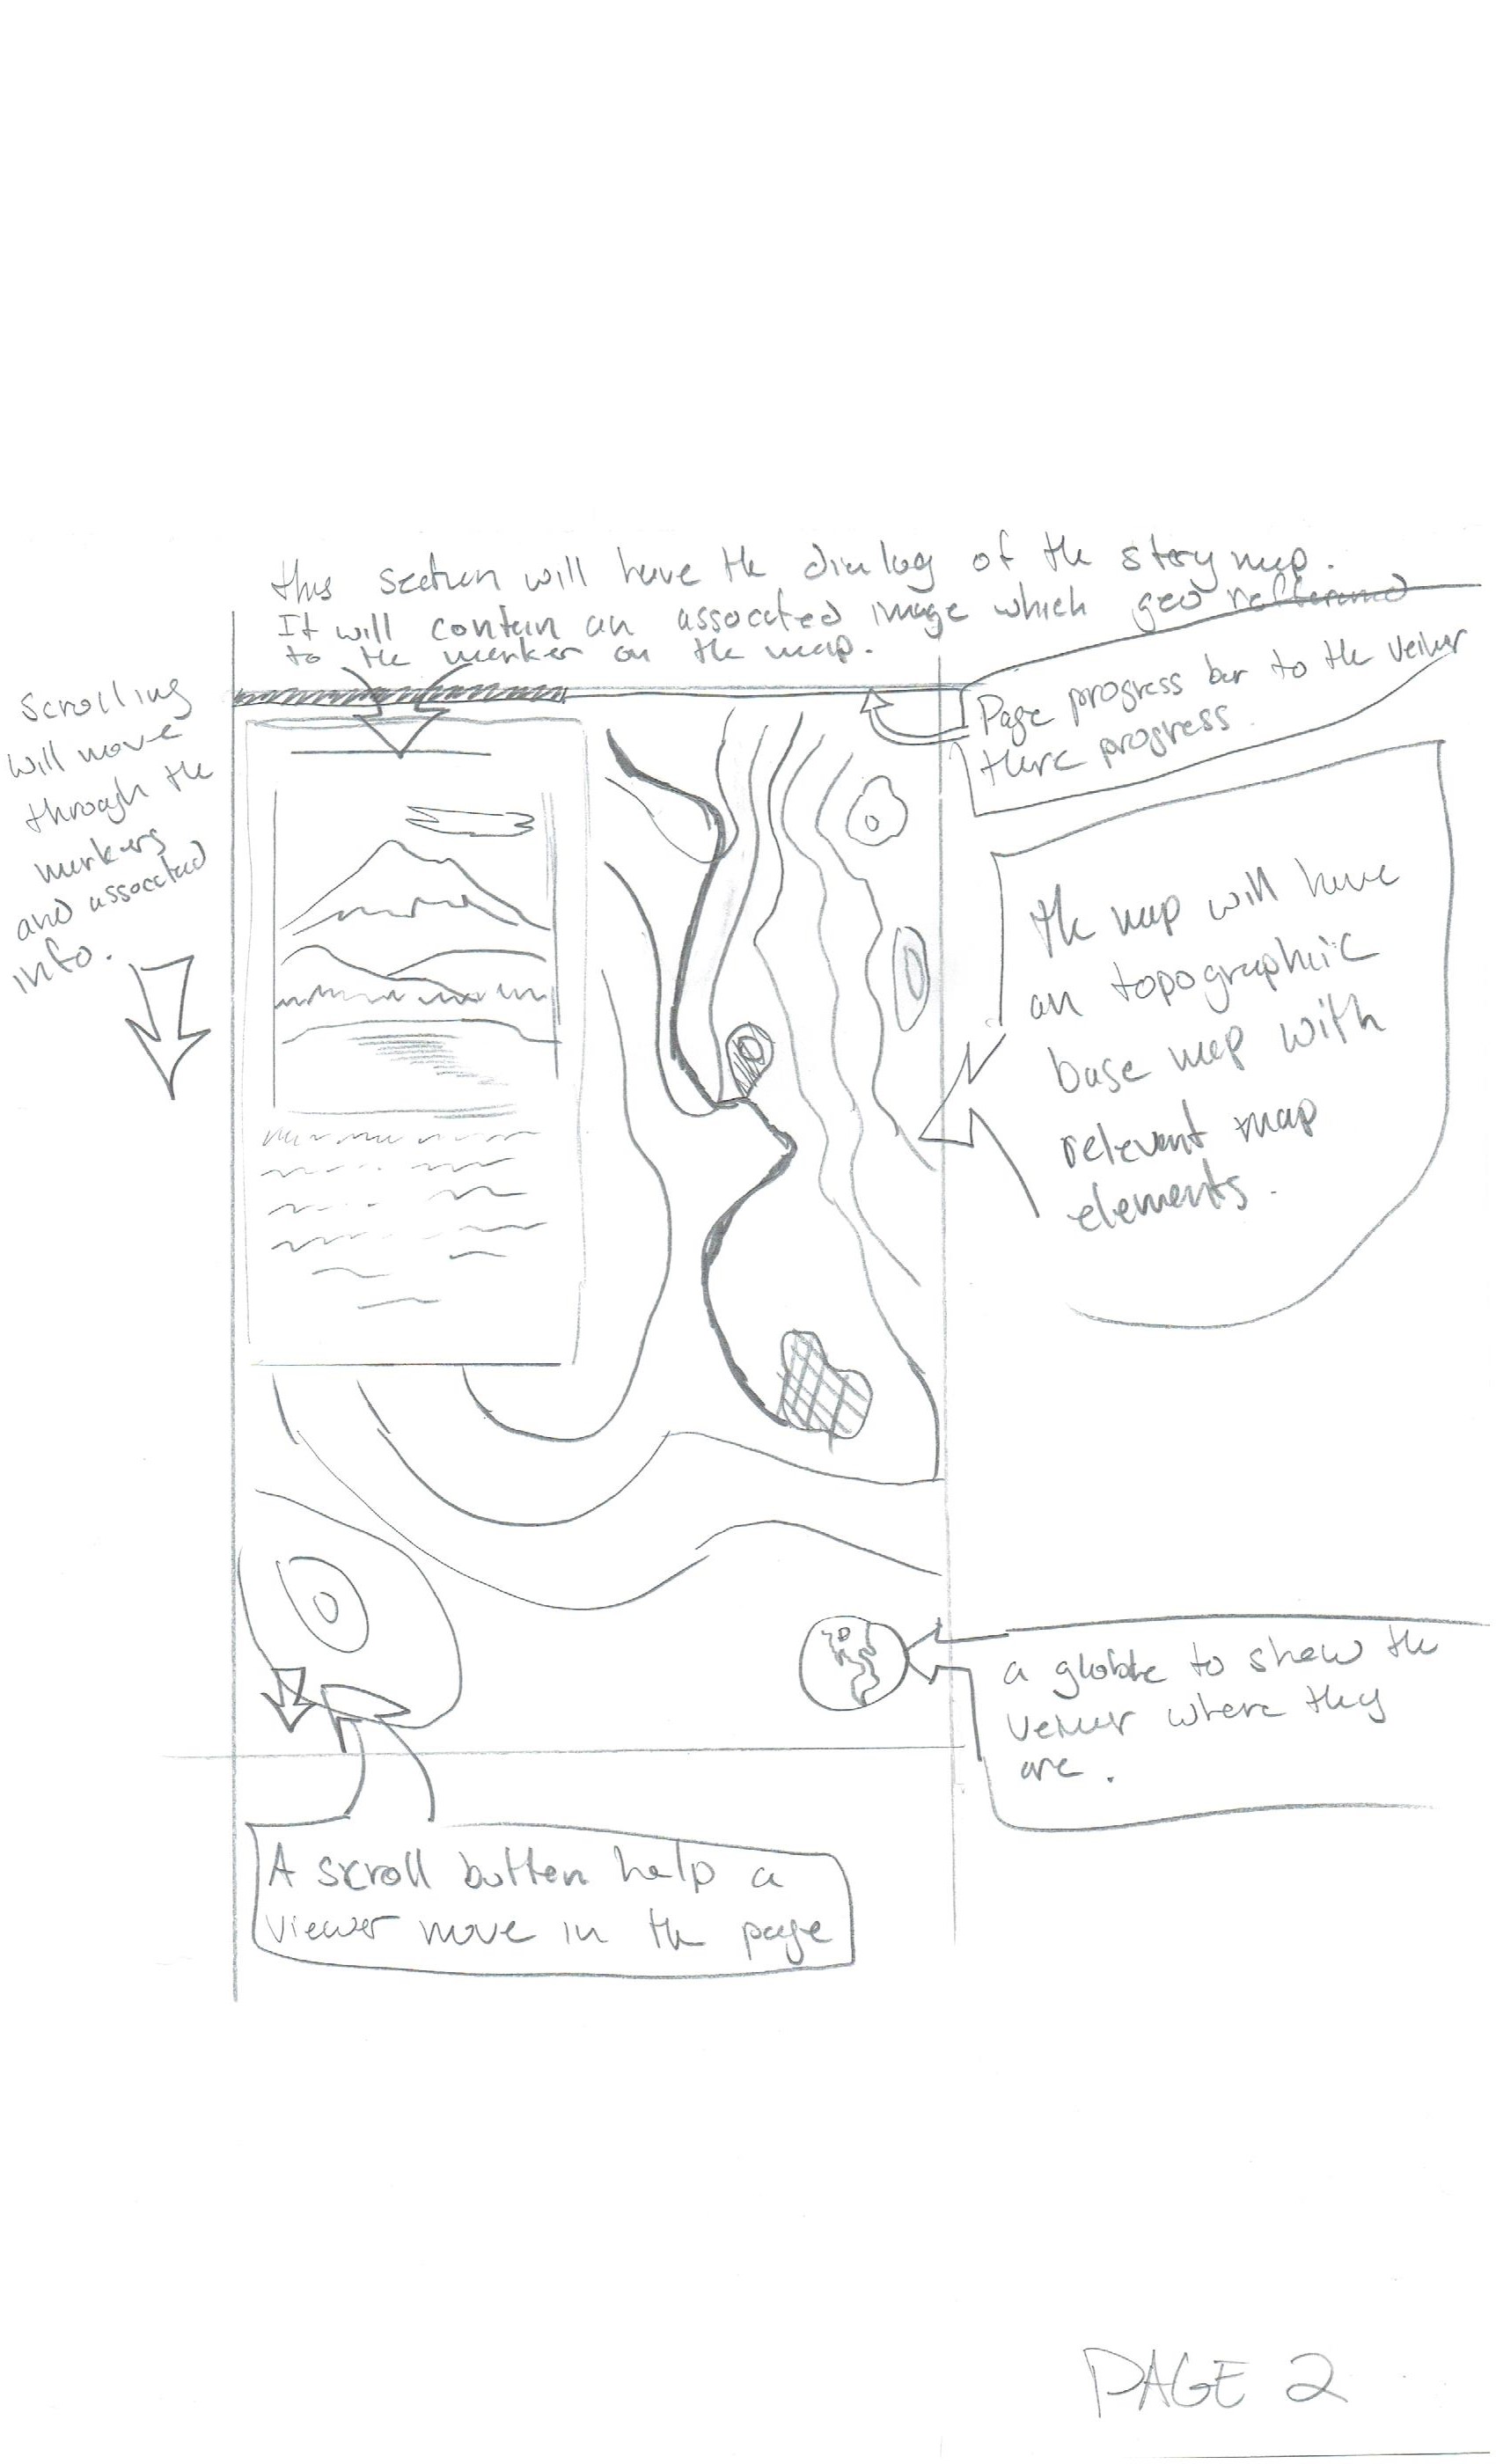 this section will have the dialog of the story map.
It will contain an assocated image which geo refferenced
to the marker on the map.
Scrolling
will move
through the
markers
and assocated
info.
Page progress bar to the veiwer
there progress.
The map will have
an topographic
base map with
relevant map
elements.
a globe to show the
veiwer where they
are.
A scroll button help a
viewer move in the page
PAGE 2